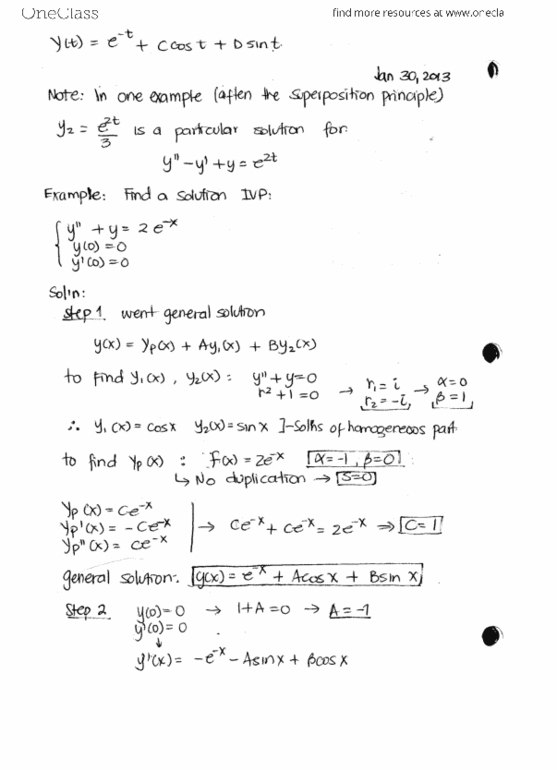 OneClass
find more resources at www.onecla
y(t) = e^-t + C cos t + D sin t
Jan 30, 2013
Note: In one example (aften the superposition principle)
y₂ = e^2t/3 is a particular solution for:
y" - y' + y = e^2t
Example: Find a solution IVP:
y" + y = 2e^-x
y(0) = 0
y'(0) = 0
Sol'n:
Step 1. went general solution
y(x) = yp(x) + Ay₁(x) + By₂(x)
to find y₁(x), y₂(x): y" + y = 0 → r₁ = i → α = 0
r² + 1 = 0 r₂ = -i, β = 1
∴ y₁(x) = cosx y₂(x) = sinx ]-Solns of homogeneous part
to find yp(x) : f(x) = 2e^-x [α = -1, β = 0]
↳ No duplication → [S=0]
yp(x) = Ce^-x
yp'(x) = -Ce^-x → Ce^-x + Ce^-x = 2e^-x ⇒ [C=1]
yp"(x) = Ce^-x
general solution: [y(x) = e^-x + Acosx + Bsin x]
Step 2 y(0) = 0 → 1+A = 0 → A = -1
y'(0) = 0
↓
y'(x) = -e^-x - Asinx + Bcosx